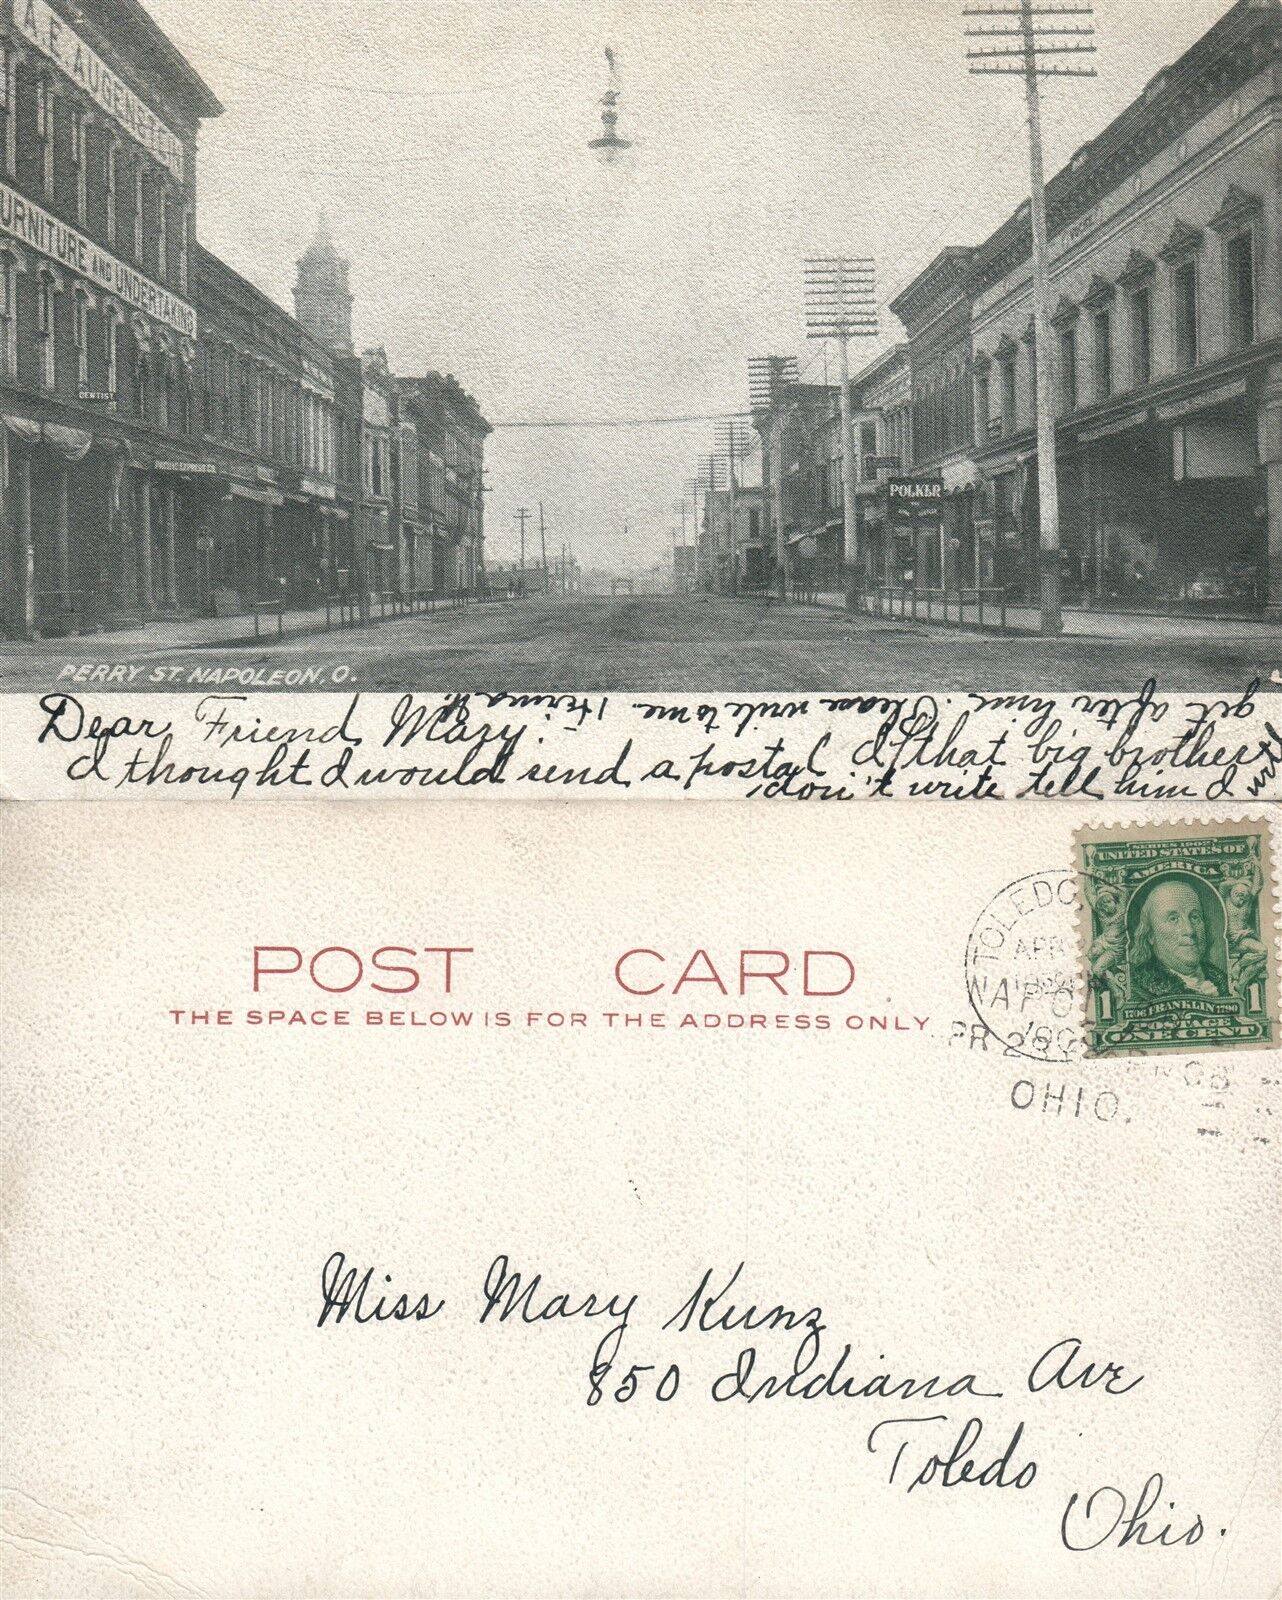 A. F. AUGENSTEIN
FURNITURE AND UNDERTAKING
DENTIST
PACIFIC EXPRESS CO.
POLKER
PERRY ST. NAPOLEON, O.
Dear Friend Mary:-
I thought I would send a postal If that big brother
don't write tell him I
get after him. Please write to me. Herma
POST CARD
THE SPACE BELOW IS FOR THE ADDRESS ONLY
TOLEDO,
APR
NAPO
190
PR 28
OHIO.
SERIES 1902
UNITED STATES OF
AMERICA
1 1706 FRANKLIN 1790 1
POSTAGE
ONE CENT
Miss Mary Kunz
850 Indiana Ave
Toledo
Ohio.